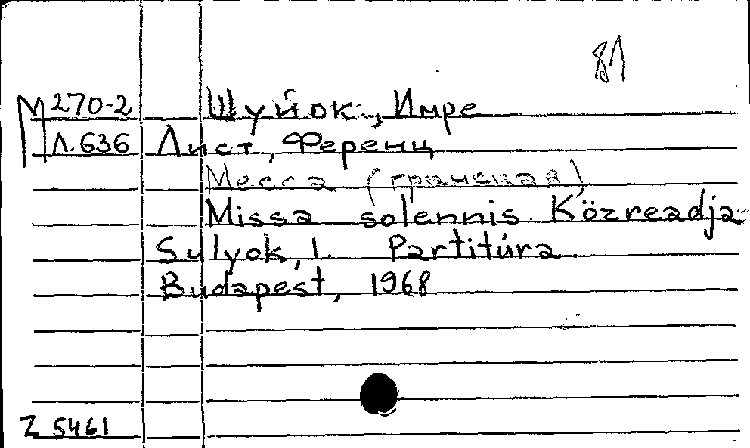 81
М 270-2 Шуйок, Имре
Л 636 Лист, Ференц
Месса (гранская)
Missa solennis Közreadja
Sulyok, I. Partitúra
Budapest, 1968
Z 5461